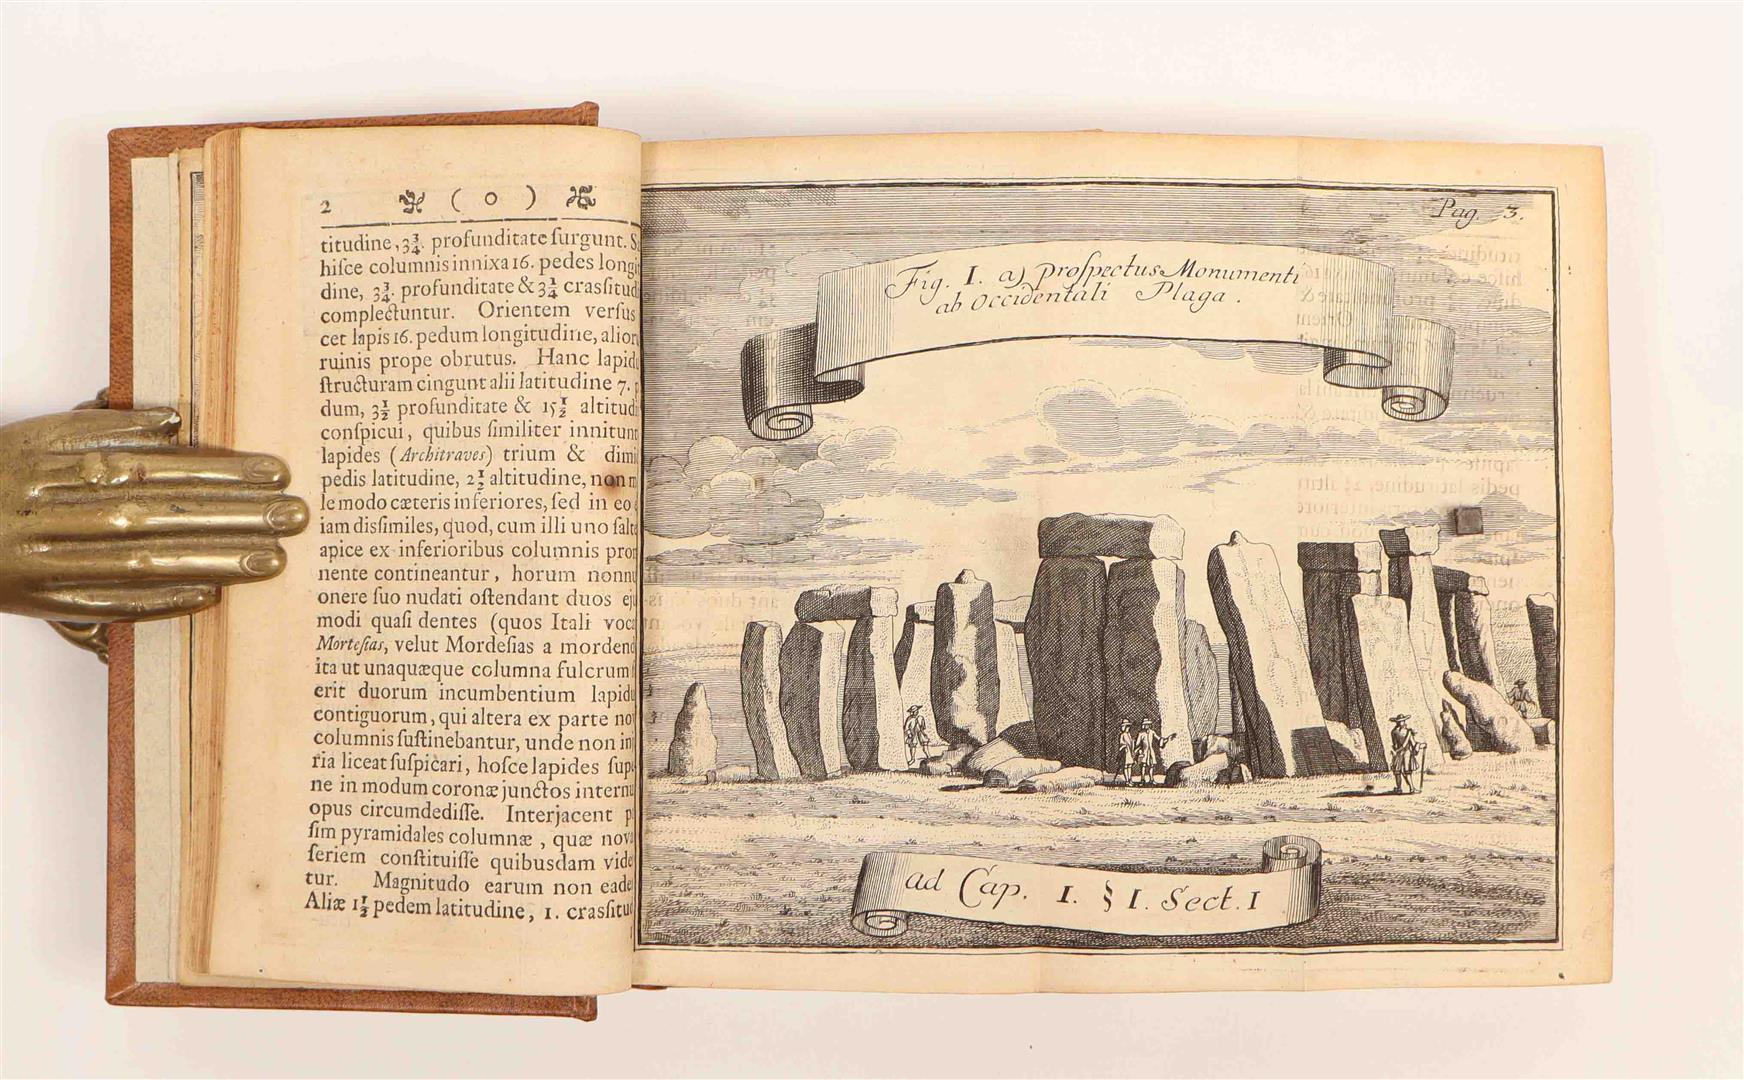 2 ( o )
titudine, 3¾. profunditate ſurgunt.
hiſce columnis innixa 16. pedes
dine, 3¾. profunditate & 3¼
complectuntur. Orientem verſus
cet lapis 16. pedum longitudine,
ruinis prope obrutus. Hanc
ſtructuram cingunt alii latitudine 7.
dum, 3½ profunditate & 15½
conſpicui, quibus ſimiliter
lapides (Architraves) trium &
pedis latitudine, 2½ altitudine, non
le modo cæteris inferiores, ſed in eo
iam diſſimiles, quod, cum illi uno
apice ex inferioribus columnis
nente contineantur, horum
onere ſuo nudati oſtendant duos
modi quaſi dentes (quos Itali
Morteſias, velut Mordeſias a
ita ut unaquæque columna fulcrum
erit duorum incumbentium
contiguorum, qui altera ex parte
columnis ſuſtinebantur, unde non
ria liceat ſuſpicari, hoſce lapides
ne in modum coronæ junctos
opus circumdediſſe. Interjacent
ſim pyramidales columnæ, quæ
ſeriem conſtituiſſe quibusdam
tur. Magnitudo earum non
Aliæ 1½ pedem latitudine, 1.
Pag. 3.
Fig. I. a) proſpectus Monumenti
ab Occidentali Plaga.
ad Cap. I. § I. Sect. I